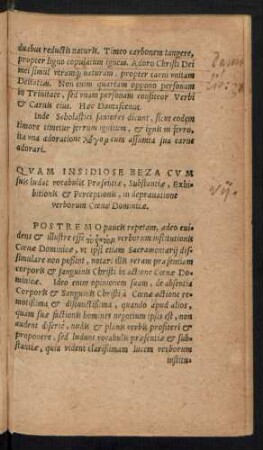 duabus reductis naturis. Timeo carbonem tangere,
propter ligno copulatum ignem. Adoro Christi Dei
mei simul utramq; naturam, propter carni unitam
Deitatem. Non enim quartam oppono personam
in Trinitate, sed unam personam confiteor Verbi
& Carnis eius. Hæc Damascenus.
Inde Scholastici saniores dicunt, sicut eodem
timore timetur ferrum ignitum, & ignis in ferro,
ita una adoratione λόγον cum assumta sua carne
adorari.
QVAM INSIDIOSE BEZA CVM
suis ludat vocabulis Præsentiæ, Substantiæ, Exhi-
bitionis & Perceptionis, in deprauatione
verborum Cœnæ Dominicæ.
POSTREMO paucis repetam, adeo eui-
dens & illustre esse τὸ ῥητὸν verborum institutionis
Cœnæ Dominicæ, ut ipsi etiam Sacramentarij dis-
simulare non possint, notari illis veram præsentiam
corporis & sanguinis Christi in actione Cœnæ Do-
minicæ. Ideo enim opinionem suam, de absentia
Corporis & Sanguinis Christi à Cœnæ actione re-
motissima & disiunctissima, quando apud alios,
quam suæ factionis homines negotium ipsis est, non
audent disertè, nudis & planis verbis profiteri &
proponere, sed ludunt vocabulis præsentiæ & sub-
stantiæ, quia vident clarissimam lucem verborum
institu-